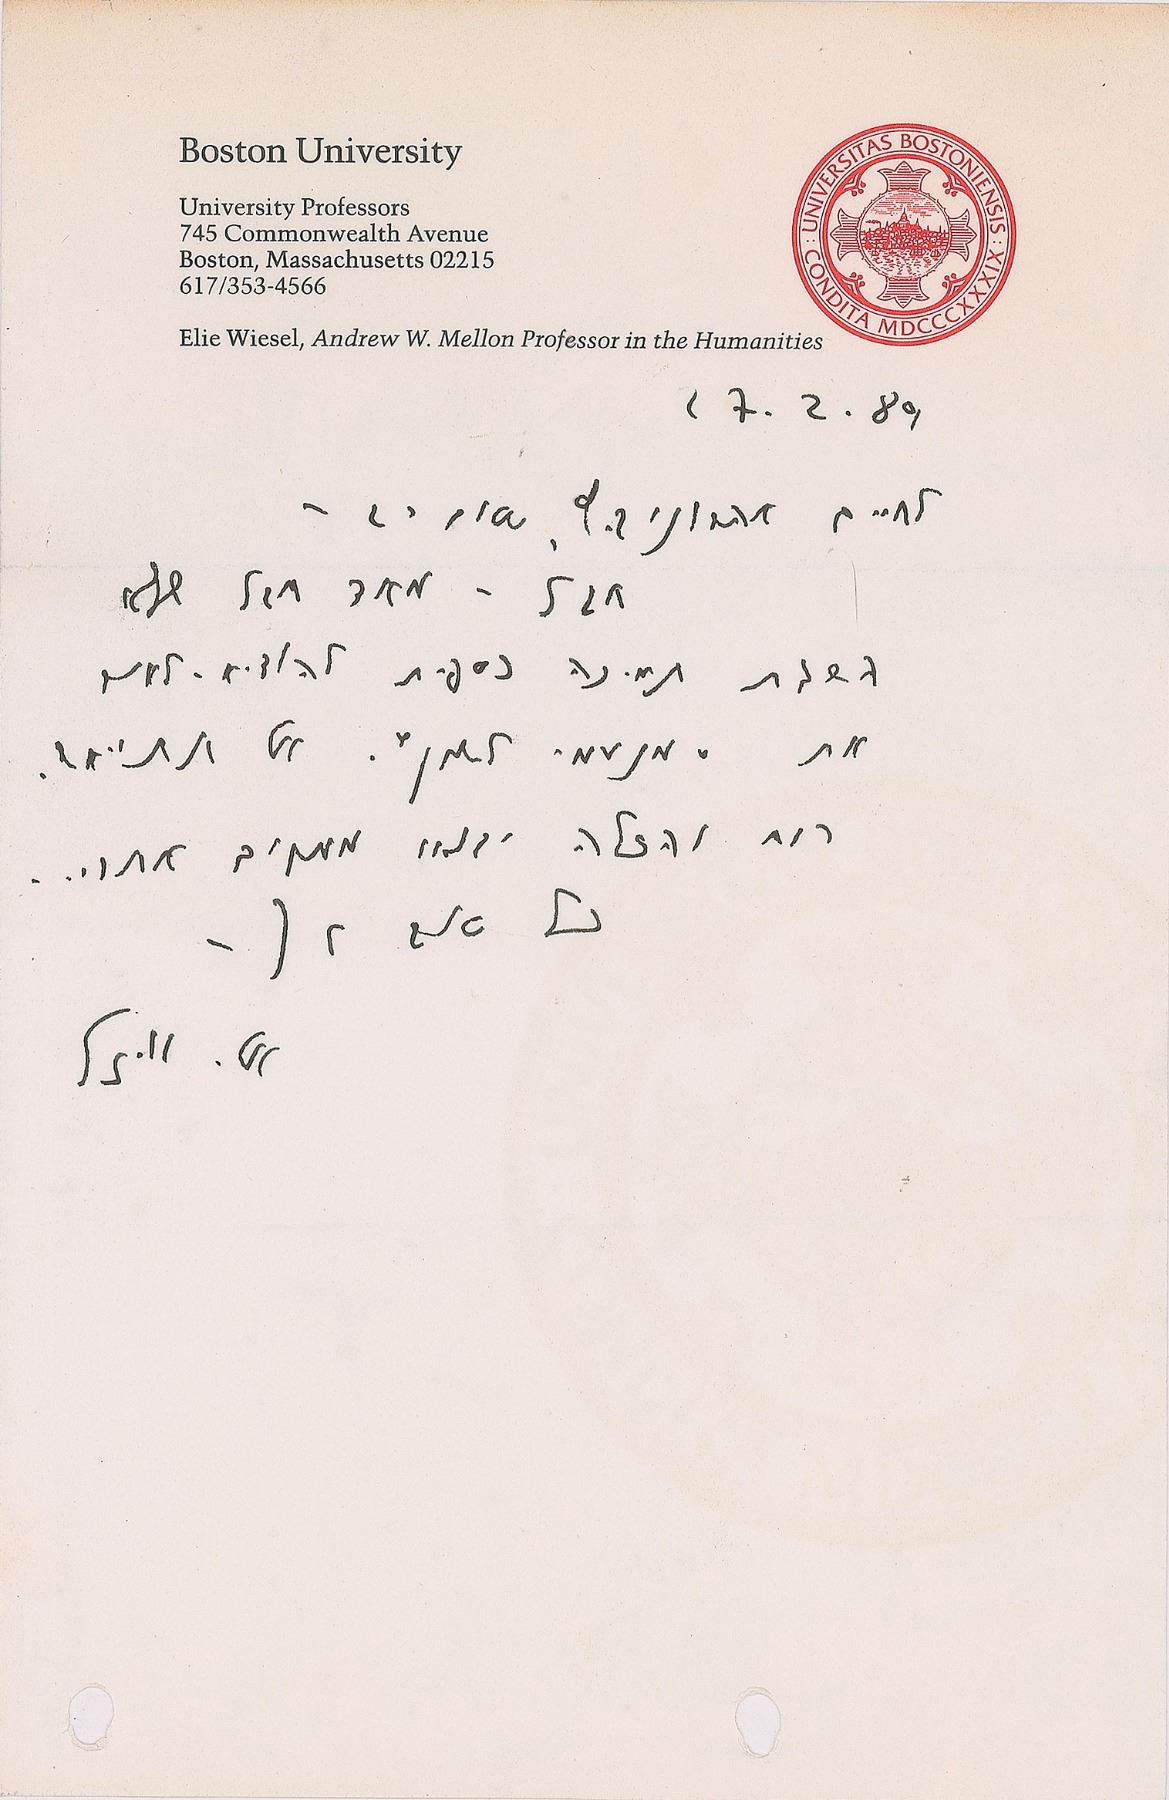 Boston University
University Professors
745 Commonwealth Avenue
Boston, Massachusetts 02215
617/353-4566
Elie Wiesel, Andrew W. Mellon Professor in the Humanities
UNIVERSITAS BOSTONIENSIS : CONDITA MDCCCXXXIX :
27.2.89
לחיים שלום רב –
חבל – מאד חבל שלא
השגת תמיכה כספית להוציא-לאור
את אל תתייאש.
רוח והצלה יבואו ממקום אחר...
כל טוב לך –
אלי ויזל